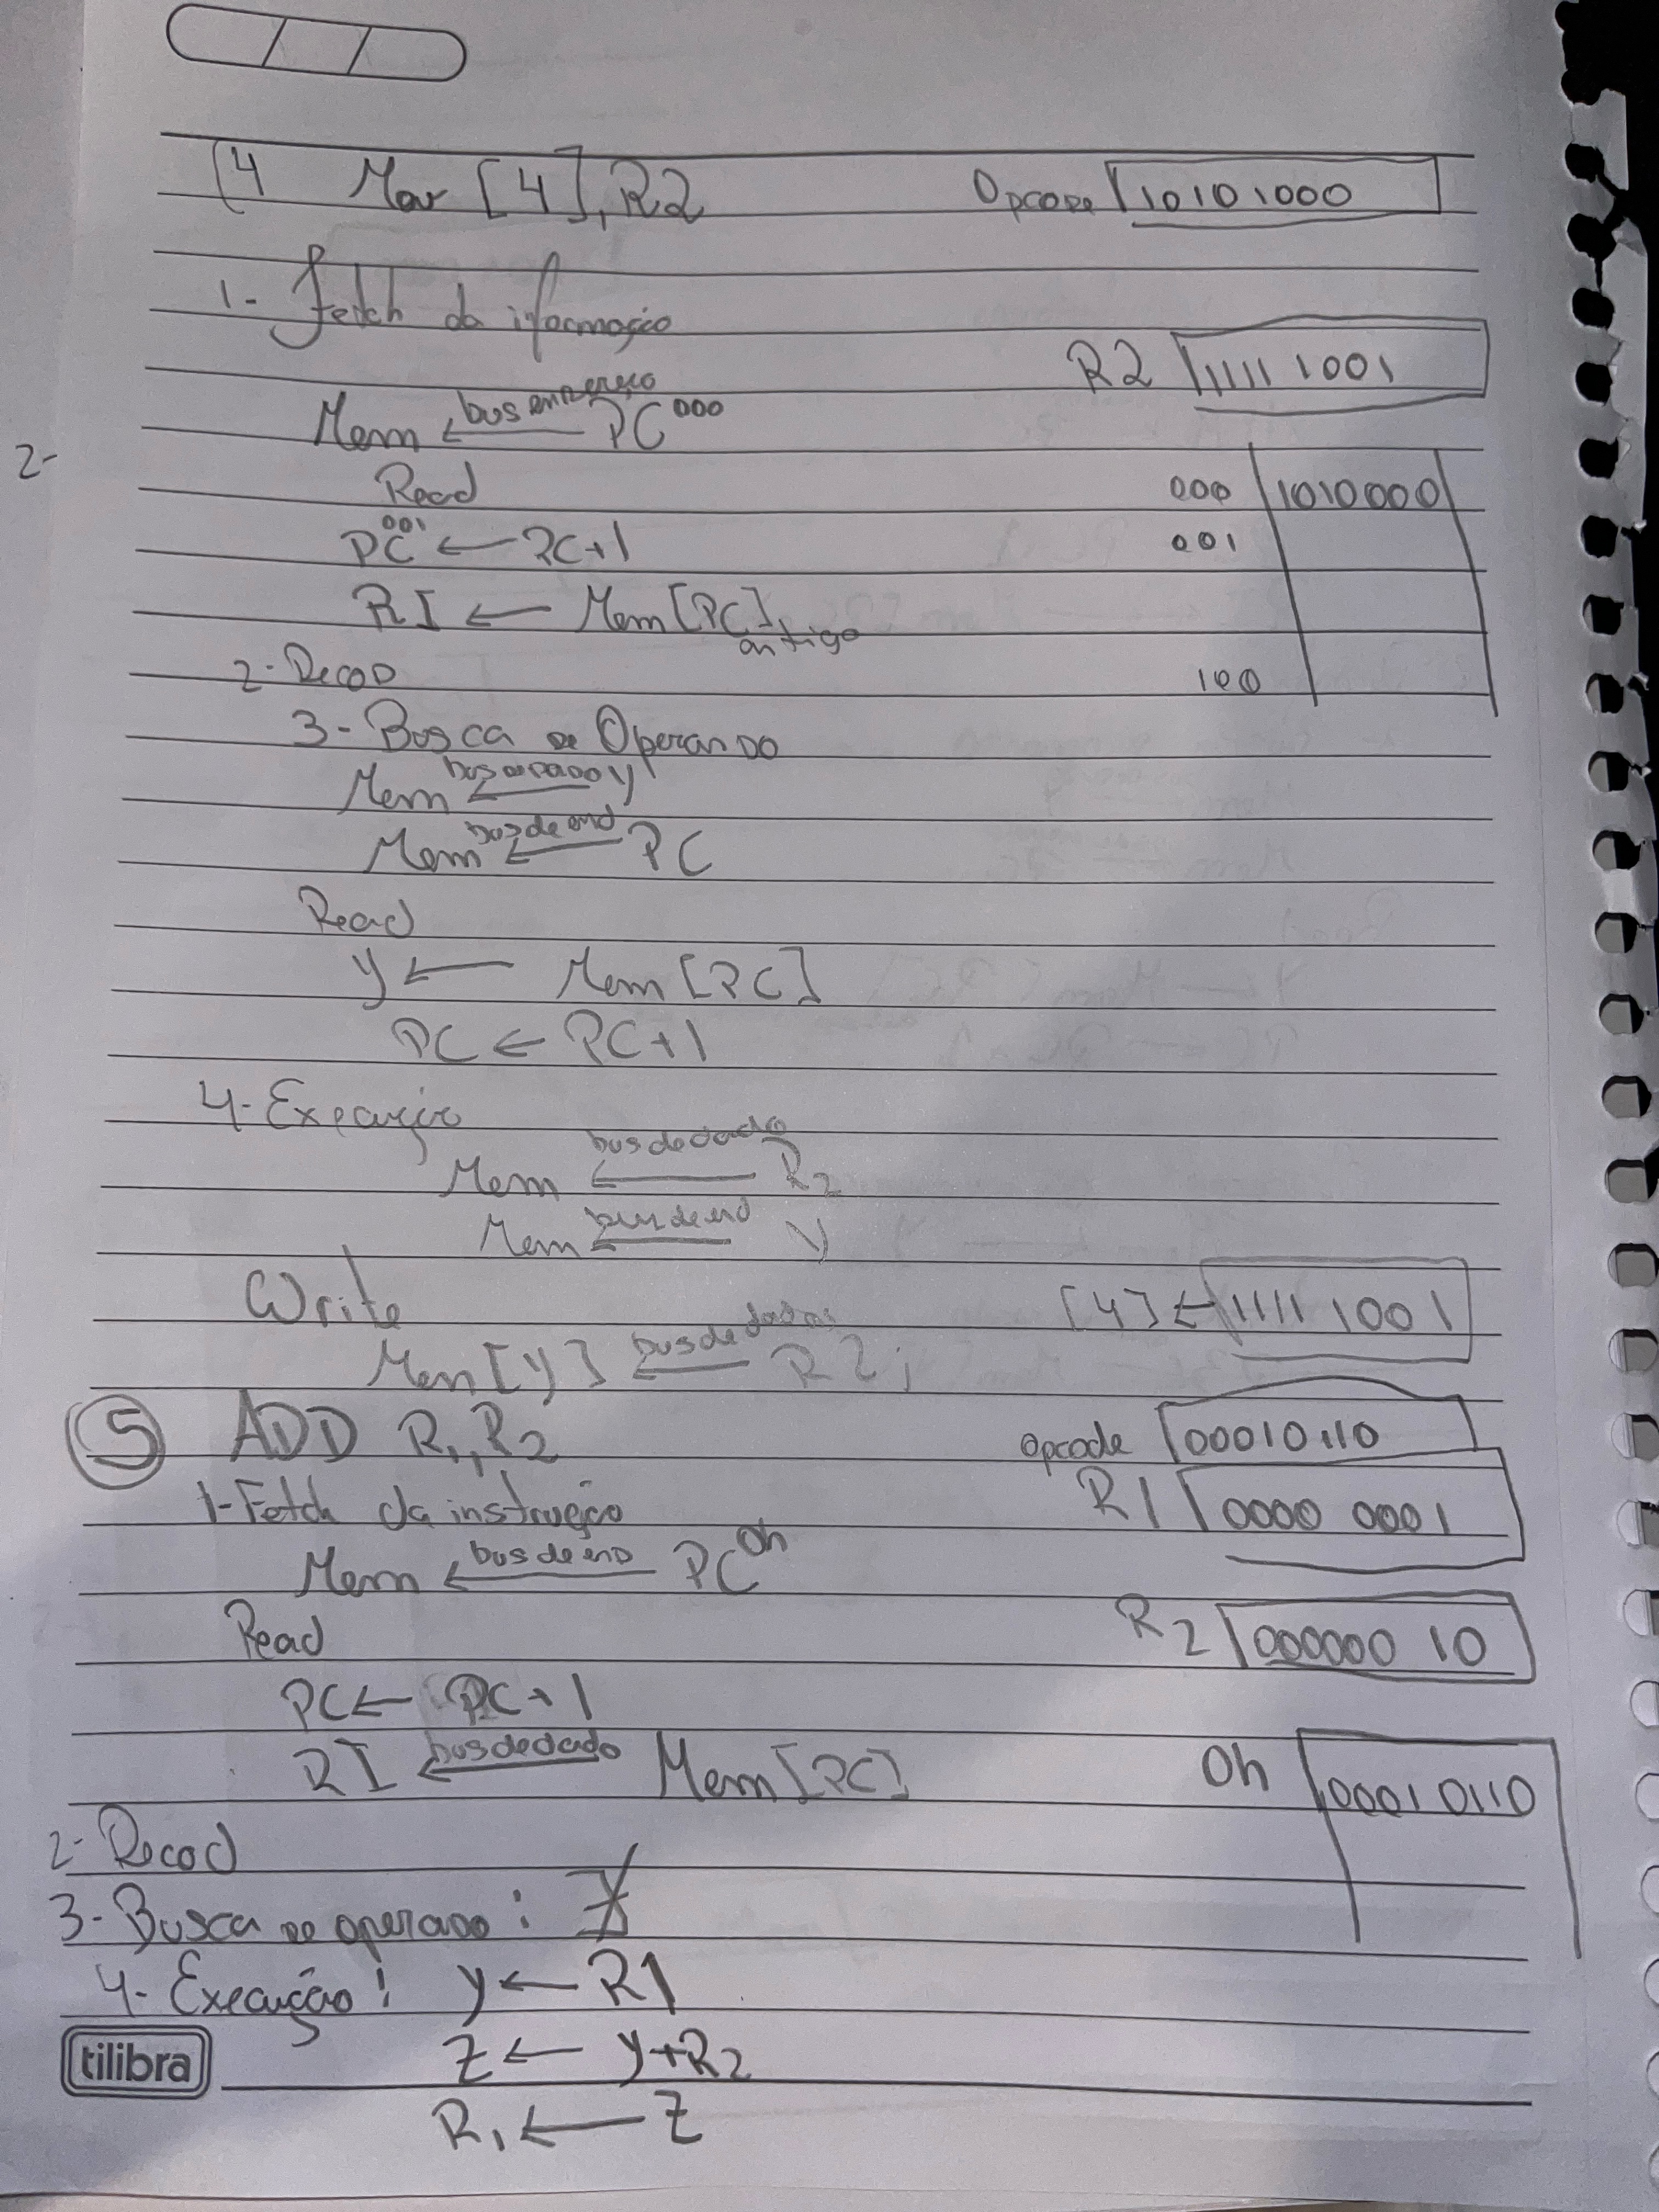 (4 Mov [4], R2 Opcode 10101000
1- Fetch da iformação
R2 11111001
Mem ← bus endereço PC 000
2-
Read 000 1010000
PC 001 ← PC+1 001
RI ← Mem [PC] antigo
2- Decod 100
3- Busca de Operando
Mem ← bus de dado y
Mem ← bus de end PC
Read
y ← Mem [PC]
PC ← PC+1
4- Execução
Mem ← bus de dado R2
Mem ← bus de end y
Write [4] ← 11111001
Mem [y] ← bus de dados R2;
5 ADD R1, R2 opcode 00010110
1- Fetch da instrução R1 0000 0001
Mem ← bus de end PC 0h
Read R2 000000 10
PC ← PC+1
RI ← bus de dado Mem [PC] 0h 00010110
2- Decod
3- Busca de operando:
4- Execução: y ← R1
Z ← y+R2
R1 ← Z
tilibra